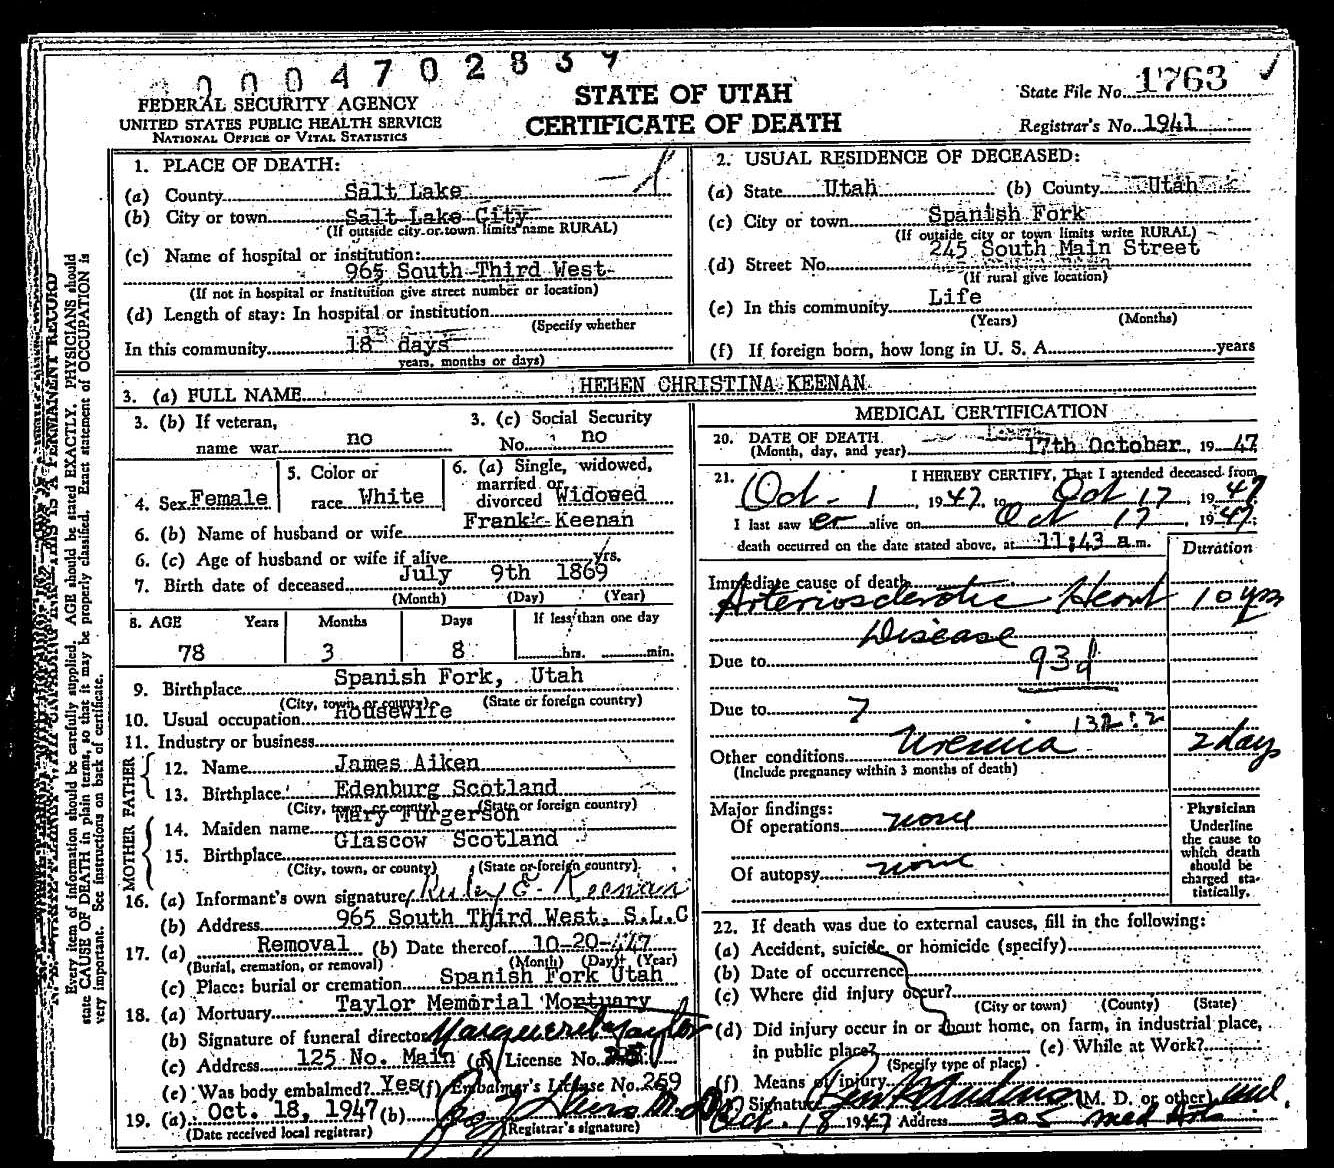 0004702839
FEDERAL SECURITY AGENCY
UNITED STATES PUBLIC HEALTH SERVICE
NATIONAL OFFICE OF VITAL STATISTICS
STATE OF UTAH
CERTIFICATE OF DEATH
State File No. 1763 ✓
Registrar's No. 1941
1. PLACE OF DEATH:
(a) County Salt Lake
(b) City or town Salt Lake City
(If outside city or town limits name RURAL)
(c) Name of hospital or institution:
965 South Third West
(If not in hospital or institution give street number or location)
(d) Length of stay: In hospital or institution
(Specify whether
In this community 18 days
years, months or days)
2. USUAL RESIDENCE OF DECEASED:
(a) State Utah (b) County Utah
(c) City or town Spanish Fork
(If outside city or town limits write RURAL)
245 South Main Street
(d) Street No.
(If rural give location)
(e) In this community Life
(Years) (Months)
(f) If foreign born, how long in U. S. A. years
3. (a) FULL NAME HEHEN CHRISTINA KEENAN
3. (b) If veteran,
name war no
3. (c) Social Security
No. no
4. Sex Female
5. Color or
race White
6. (a) Single, widowed,
married or
divorced Widowed
6. (b) Name of husband or wife Frank Keenan
6. (c) Age of husband or wife if alive yrs.
7. Birth date of deceased July 9th 1869
(Month) (Day) (Year)
8. AGE Years Months Days If less than one day
78 3 8 hrs. min.
9. Birthplace Spanish Fork, Utah
(City, town, or county) (State or foreign country)
10. Usual occupation Housewife
11. Industry or business
FATHER
12. Name James Aiken
13. Birthplace Edenburg Scotland
(City, town, or county) (State or foreign country)
MOTHER
14. Maiden name Mary Furgerson
15. Birthplace Glascow Scotland
(City, town, or county) (State or foreign country)
16. (a) Informant's own signature E. Keenan
(b) Address 965 South Third West, S.L.C
17. (a) Removal (b) Date thereof 10-20-47
(Burial, cremation, or removal) (Month) (Day) (Year)
(c) Place: burial or cremation Spanish Fork Utah
18. (a) Mortuary Taylor Memorial Mortuary
(b) Signature of funeral director Marguerite Taylor
(c) Address 125 No. Main (d) License No.
(e) Was body embalmed? Yes (f) Embalmer's License No. 259
19. (a) Oct. 18, 1947 (b)
(Date received local registrar) (Registrar's signature)
MEDICAL CERTIFICATION
20. DATE OF DEATH
(Month, day, and year) 17th October, 1947
21. I HEREBY CERTIFY, That I attended deceased from
Oct - 1, 1947, to Oct 17, 1947
I last saw er alive on Oct 17, 1947;
death occurred on the date stated above, at 11:43 a.m.
Duration
Immediate cause of death
Arteriosclerotic Heart 10 yrs
Disease
Due to 93d
Due to 7
132:2
Other conditions Uremia 2 days
(Include pregnancy within 3 months of death)
Major findings:
Of operations none
Of autopsy none
Physician
Underline
the cause to
which death
should be
charged sta-
tistically.
22. If death was due to external causes, fill in the following:
(a) Accident, suicide, or homicide (specify)
(b) Date of occurrence
(c) Where did injury occur?
(City or town) (County) (State)
(d) Did injury occur in or about home, on farm, in industrial place,
in public place? (e) While at Work?
(Specify type of place)
(f) Means of injury
Signature (M. D. or other) md.
Oct. 18 1947 Address 305 Med Arts
Every item of information should be carefully supplied. AGE should be stated EXACTLY. PHYSICIANS should
state CAUSE OF DEATH in plain terms, so that it may be properly classified. Exact statement of OCCUPATION is
very important. See instructions on back of certificate.